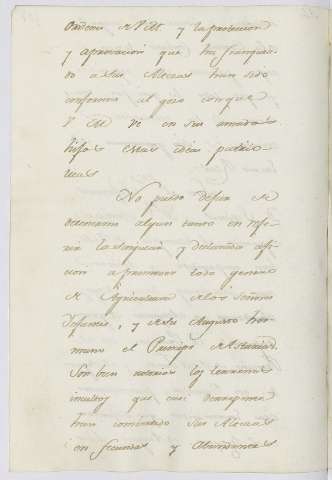 Ordenes de V.M. y la proteccion
y aprovacion que ha franquea-
do a sus Altezas han sido
conformes al gozo con que
V.M. ve en sus amados
hijos estas ideas patrio-
ticas
No puedo dejar de
detenerme algun tanto en refe-
rir la singular y declarada afi-
cion a promover todo genero
de Agricultura de los Señores
Infantes, y de su Augusto her-
mano el Principe de Asturias.
Son bien notorios los terrenos
incultos que casi de repente
han combertido sus Altezas
en fecundas y Abundantes